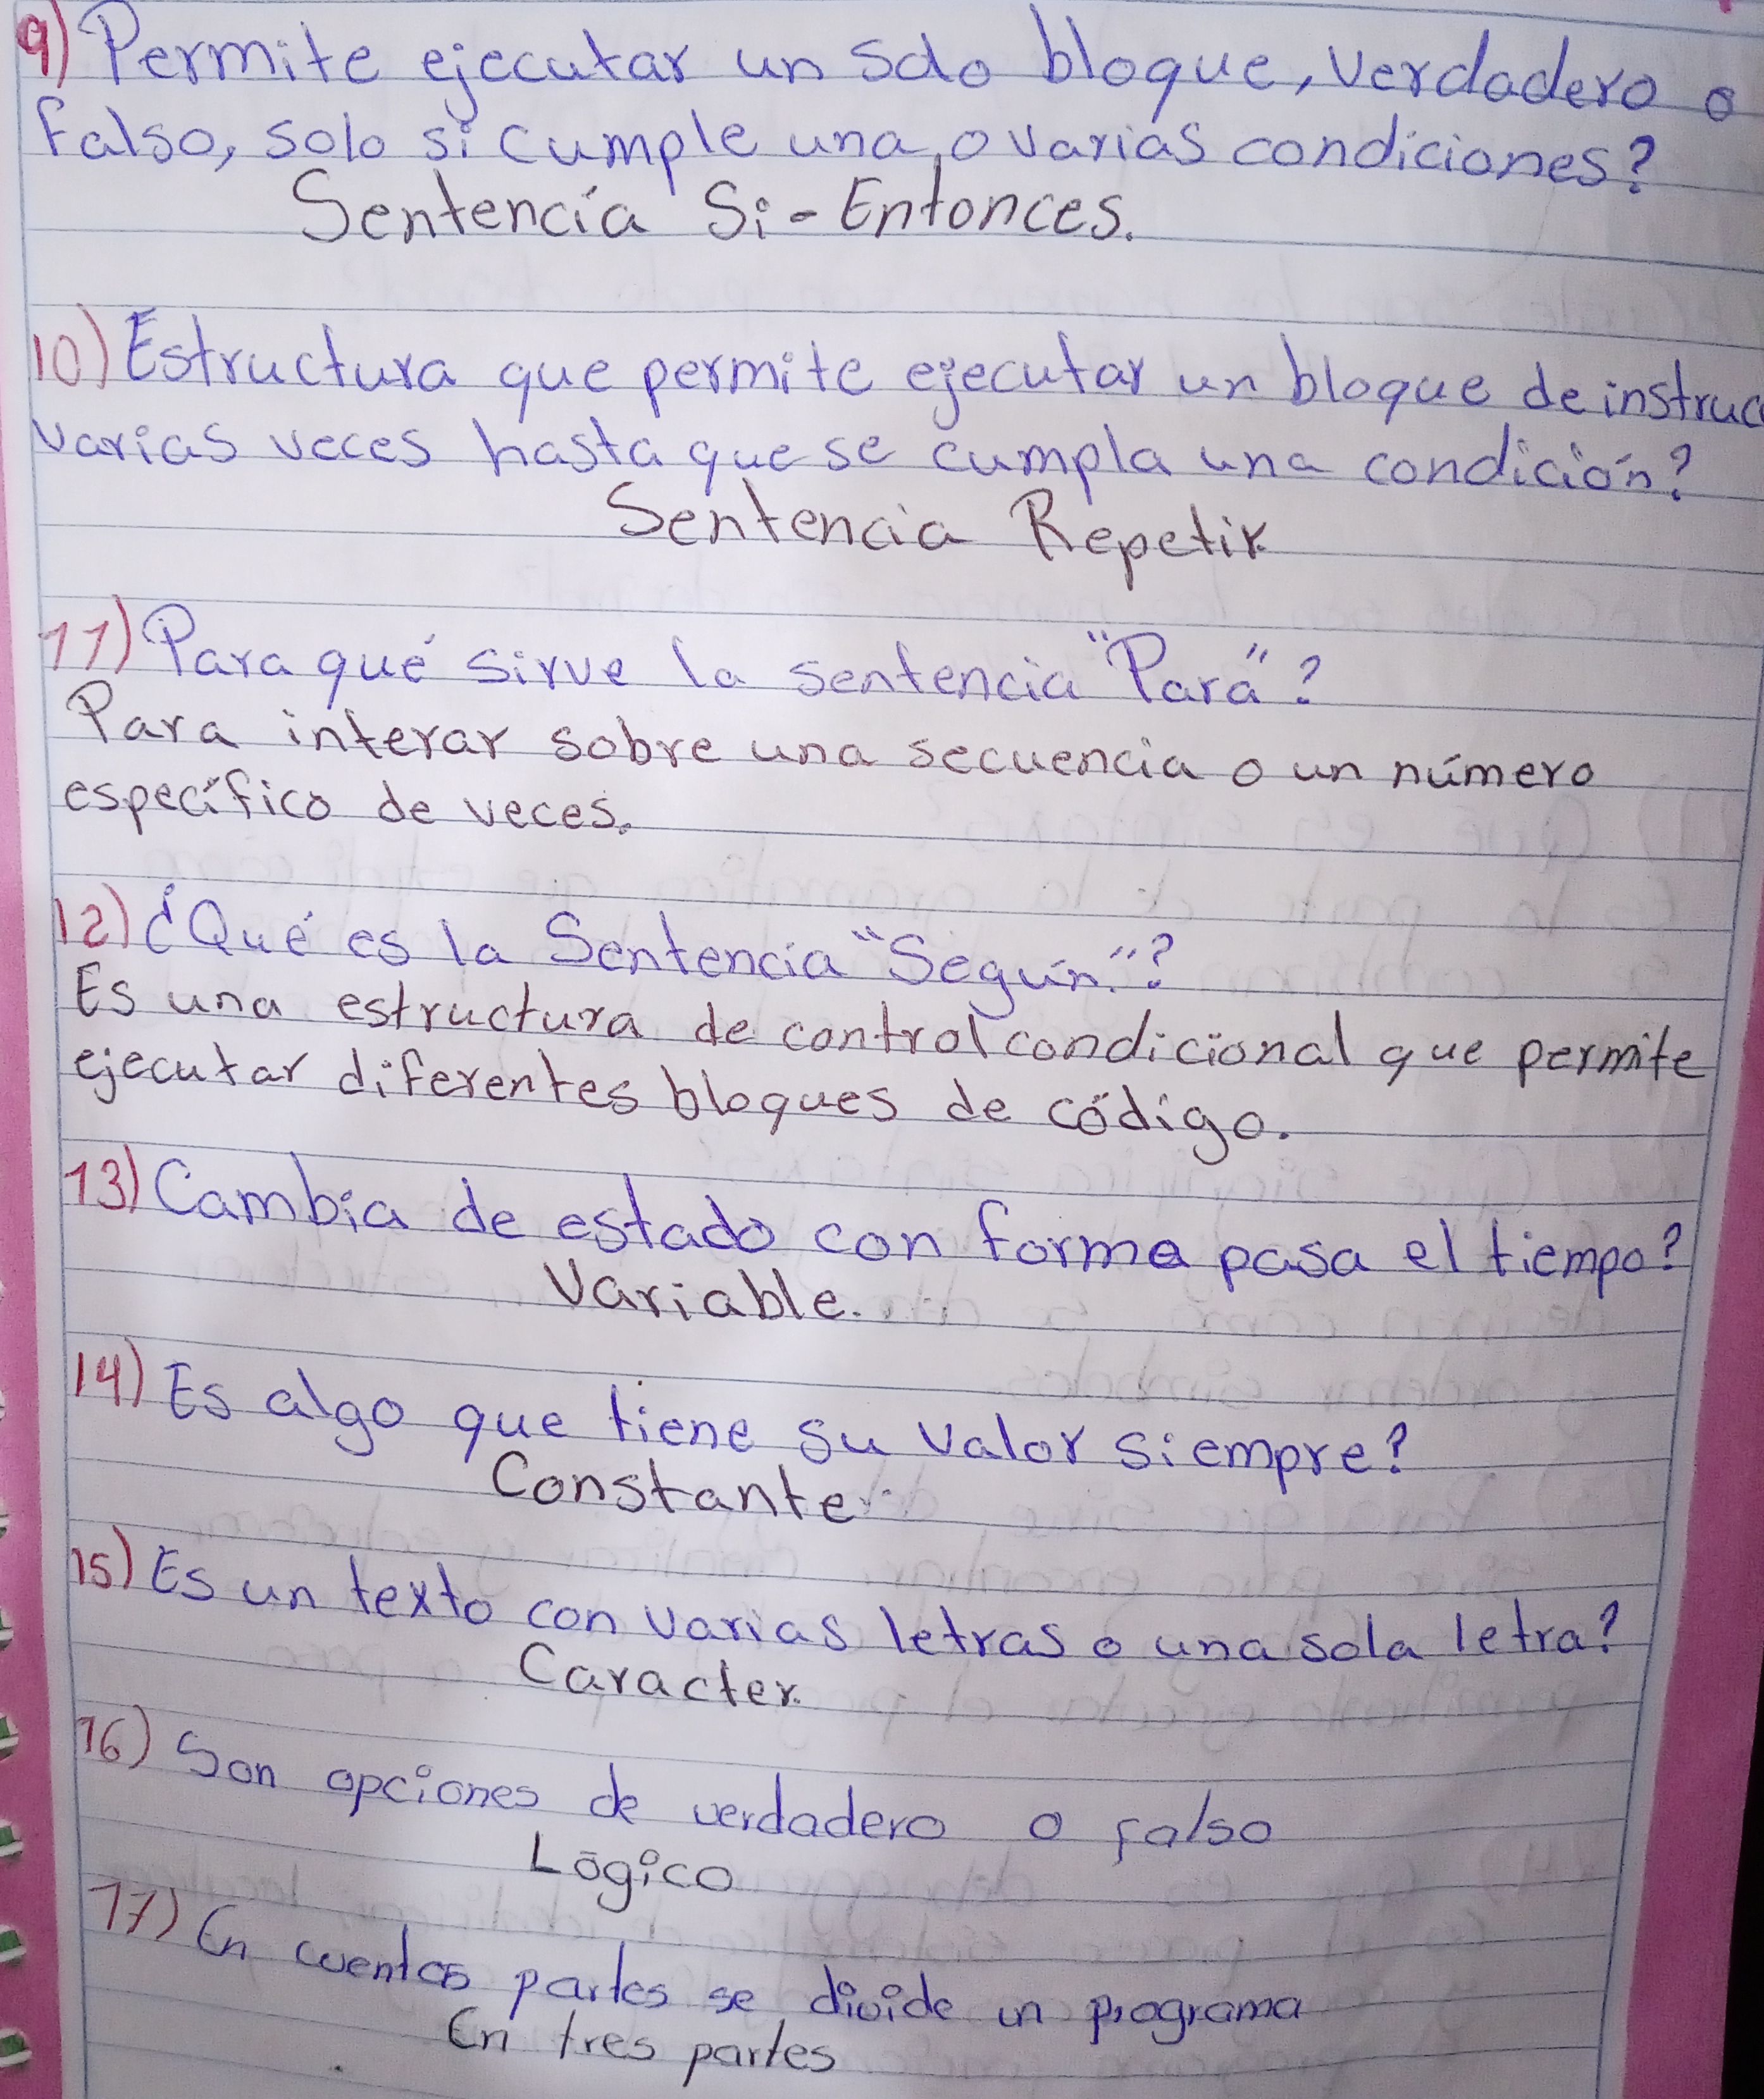 9) Permite ejecutar un solo bloque, Verdadero o
Falso, solo si cumple una, o varias condiciones?
Sentencia Si-Entonces.
10) Estructura que permite ejecutar un bloque de instruc
varias veces hasta que se cumpla una condición?
Sentencia Repetir
11) Para qué sirve la sentencia "Para"?
Para interar sobre una secuencia o un número
específico de veces.
12) ¿Qué es la Sentencia "Según"?
Es una estructura de control condicional que permite
ejecutar diferentes bloques de código.
13) Cambia de estado con forme pasa el tiempo?
Variable.
14) Es algo que tiene su valor siempre?
Constante
15) Es un texto con varias letras o una sola letra?
Caracter.
16) Son opciones de verdadero o falso
Lógico
17) En cuentas partes se divide un programa
En tres partes